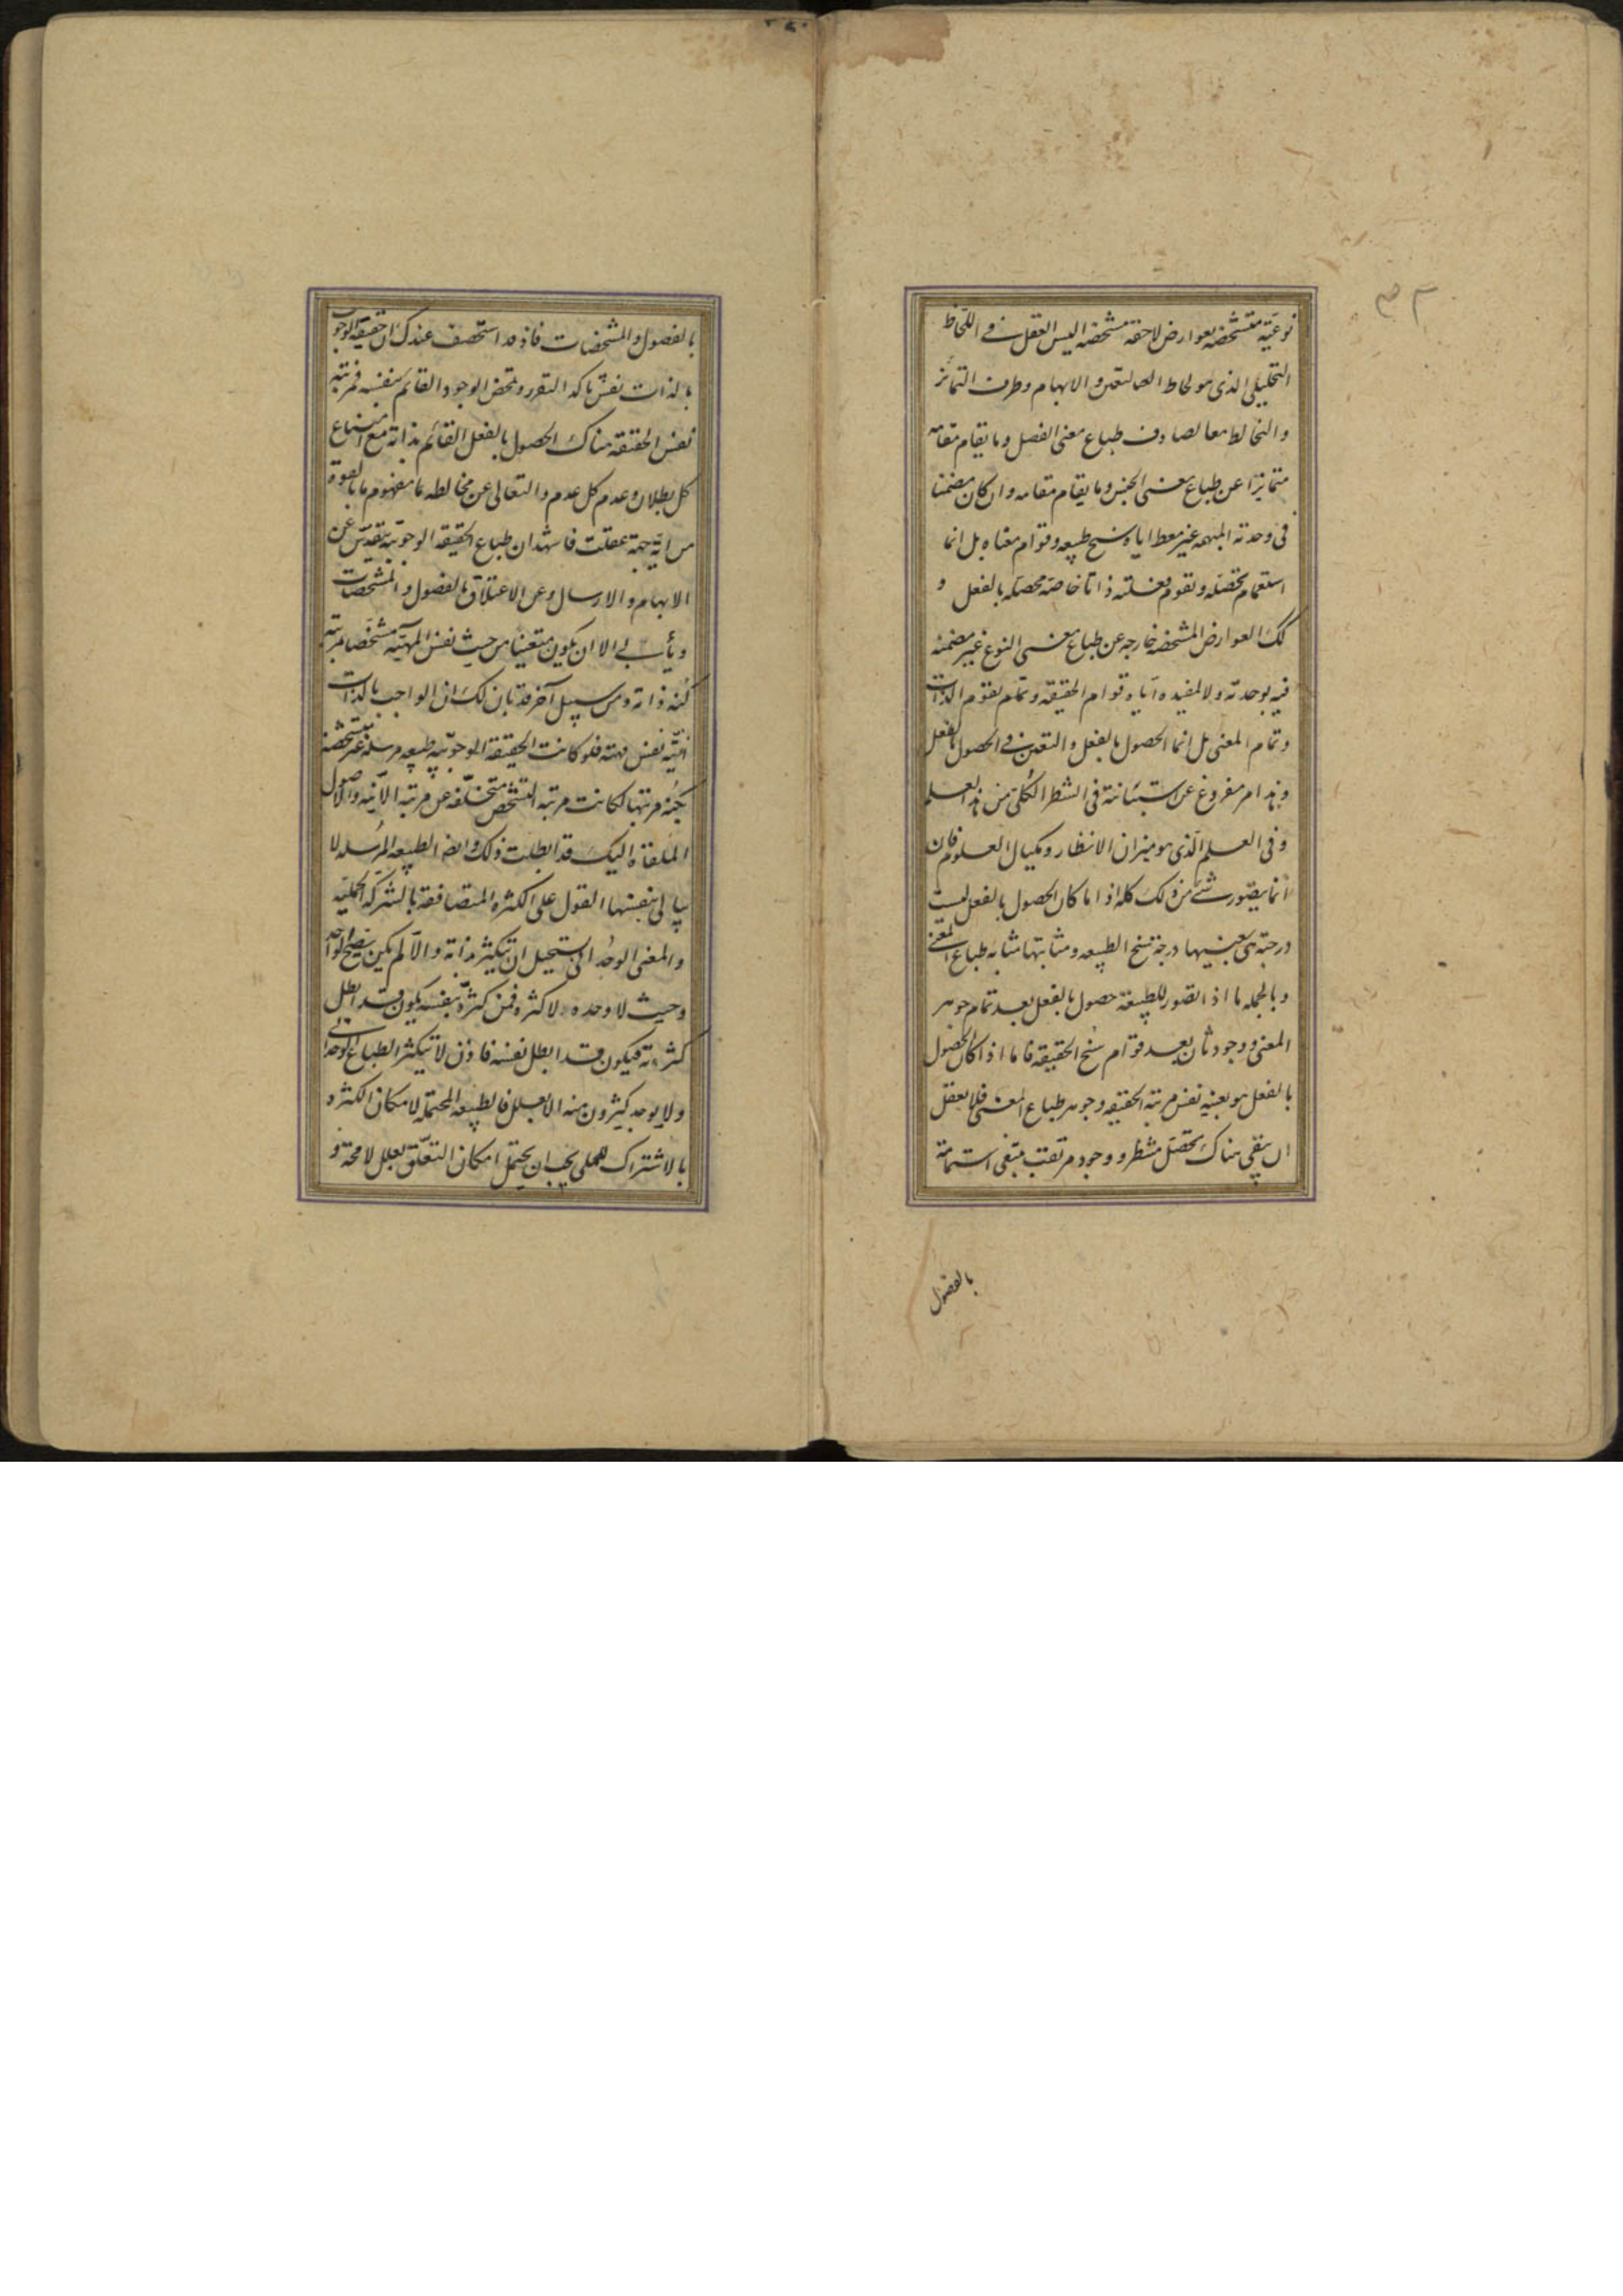 نوعية متشخصة بعوارض لاحقة مشخصة اليس العقل في اللحاظ
التحليلي الذي هو لحاظ التعين و الابهام وظرف التمائز
والتخالط معا يصادف طباع معنى الفصل وما يقام مقامه
متمائزا عن طباع معنى الجنس وما يقام مقامه وان كان مضمنا
في وحدته المبهمة غير معط اياه سنخ طبيعه وقوام معناه بل انما
استتمام تحصله وتقوم فعليته ذاتا خاصة محصلة بالفعل و
لك العوارض المشخصة خارجة عن طباع معنى النوع غير مضمنة
فيه بوحدته ولا لمفيدة اياه قوام الحقيقة وتمام تقوم الذات
وتمام المعنى بل انما الحصول بالفعل والتعين في الحصول بالفعل
وهذا امر مفروغ عن استبانته في الشطر الكلي من هذا العلم
وفي العلم الذي هو ميزان الانظار ومكيال العلوم فان
انما يتصور شئ من ذلك كله اذا ما كان الحصول بالفعل ليست
درجته هي بعينها درجة سنخ الطبيعه ومثابتها مثابة طباع المعنى
وبالجمله ما اذا تصور للطبيعة حصول بالفعل بعد تمام جوهر
المعنى ووجود ثان بعد قوام سنخ الحقيقه فاما اذا كان الحصول
بالفعل هو بعينه نفس مرتبة الحقيقه وجوهر طباع المعنى فلا يعقل
ان يبقى هناك تحصل منتظر ووجود مرتقب يبتغى استتمامه
بالفصول
بالفصول والمشخصات فاذ قد استحصف عندك ان حقيقة الوجوب
بالذات نفس تاكد التقرر ومحض الوجود القائم بنفسه فمرتبة
نفس الحقيقة هناك الحصول بالفعل القائم بذاته مع امتناع
كل بطلان وعدم كل عدم والتعالى عن مخالطه ما مفهوم ما بالقوة
من اية جهة عقلت فاشهد ان طباع الحقيقة الوجوبية يتقدس عن
الابهام والارسال وعن الاعتلاق بالفصول والمشخصات
ويأبى الا ان يكون متعينا من حيث نفس المهية متشخصا بمرتبة
كنه ذاته ومن سبيل آخر قد بان لك ان الواجب بالذات
انيته نفس مهيته فلو كانت الحقيقة الوجوبية طبيعه مرسلة غير متشخصة
بكنه مرتبتها لكانت مرتبة التشخص متخلفة عن مرتبة الانية والاصول
الملقاة اليك قد ابطلت ذلك وايضا الطبيعه المرسله لا
يابى بنفسها القول على الكثرة المتصافقة بالشركة الحملية
والمعنى الوحداني يستحيل ان يتكثر بذاته والا لم يكن يصح لواحد
وحيث لا وحده لا كثرة فمن كثره بنفسه يكون قد ابطل
كثرته فيكون قد ابطل نفسه فاذن لا يتكثر الطباع الوحداني
ولا يوجد كثيرون منه الا بعلل فالطبيعه المحتملة لامكان الكثرة و
بالاشتراك الحملي يجب ان يحتمل امكان التعلق بعلل لامحة و